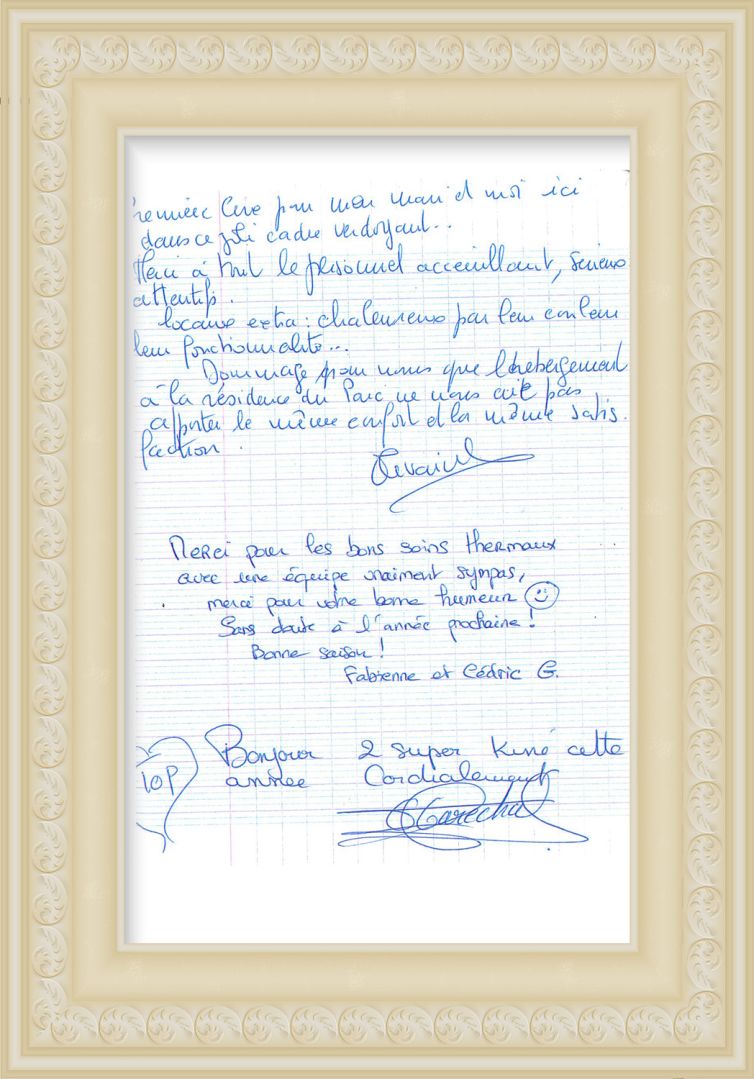 Première Cure pour mon mari et moi ici
dans ce joli cadre verdoyant..
Merci à tout le personnel acceuillant, sérieux
attentifs.
Locaux extra : chaleureux par leur couleur
leur fonctionnalité...
Dommage pour nous que l'hébergement
à la résidence du Parc ne nous ait pas
apporter le même confort et la même satis.
faction.
Merci pour les bons soins thermaux
avec une équipe vraiment sympas,
merci pour votre bonne humeur
Sans doute à l'année prochaine !
Bonne saison !
Fabienne et Cédric G.
TOP
Bonjour 2 super Kiné cette
année Cordialement
Marechal